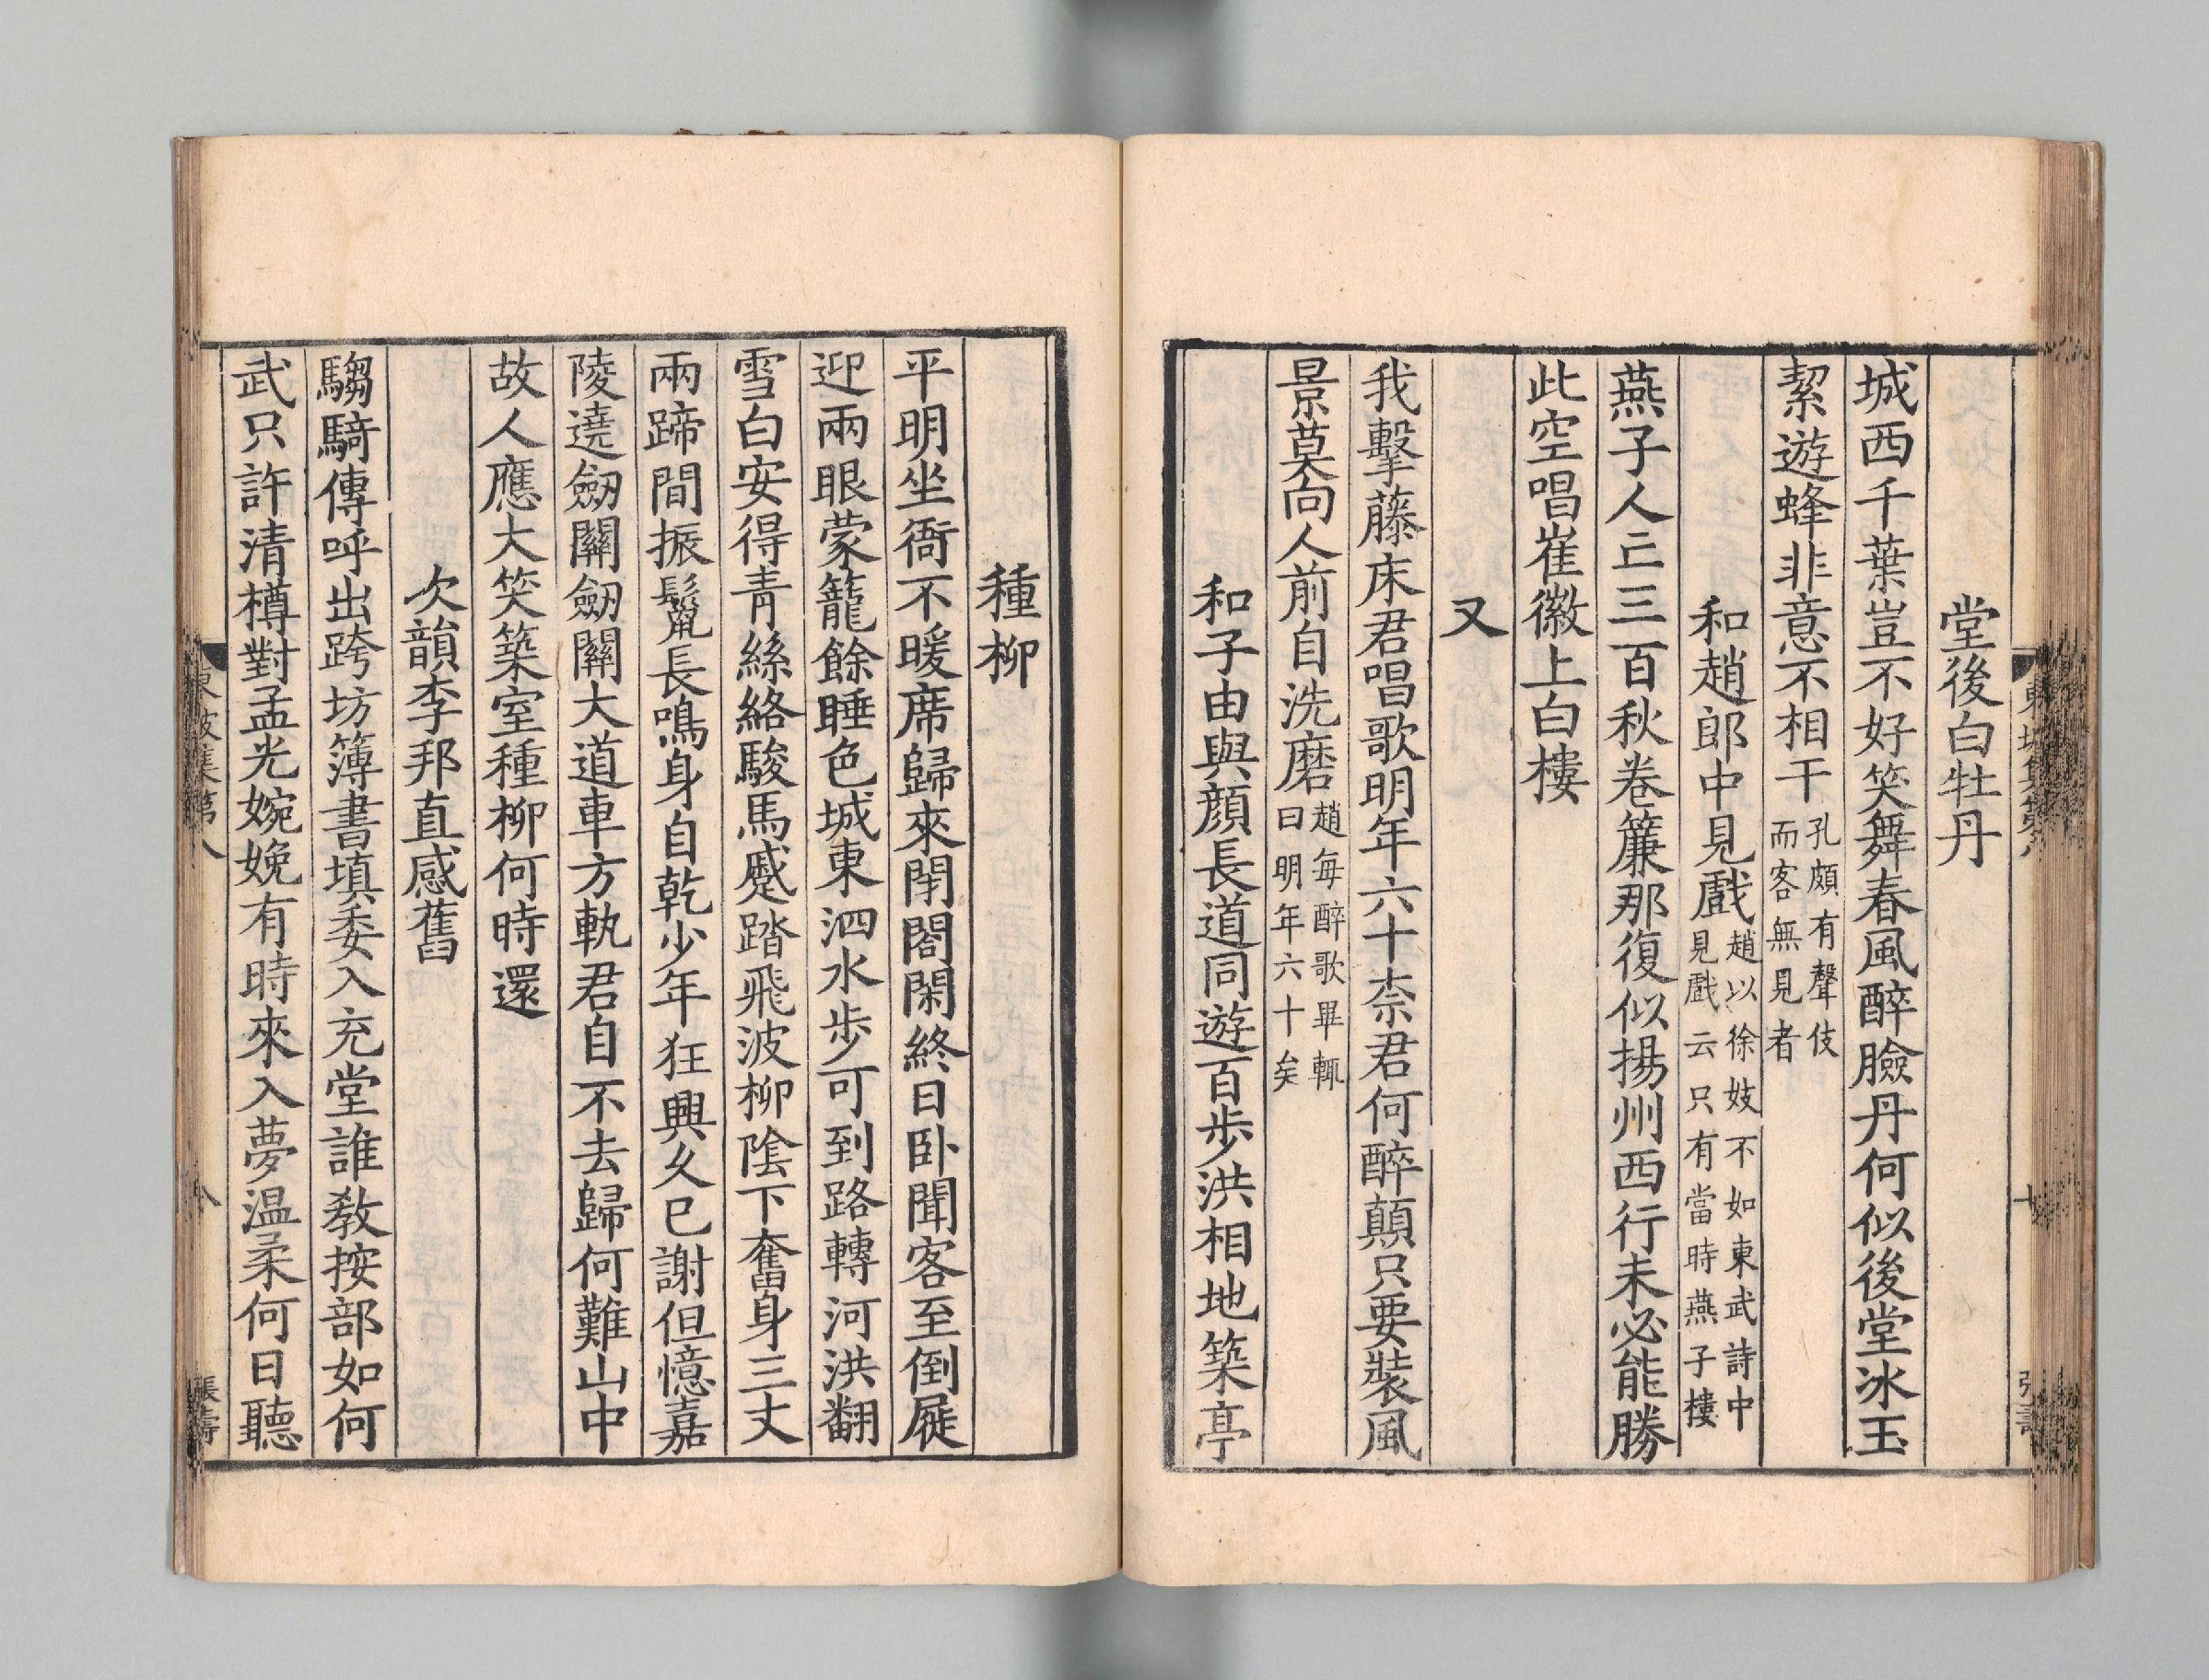 堂後白牡丹
城西千葉豈不好笑舞春風醉臉丹何似後堂冰玉
絜遊蜂非意不相干孔頗有聲伎
而客無見者
和趙郎中見戲趙以徐妓不如東武詩中
見戲云只有當時燕子樓
燕子人亡三百秋卷簾那復似揚州西行未必能勝
此空唱崔徽上白樓
又
我擊藤床君唱歌明年六十柰君何醉顛只要裝風
景莫向人前自洗磨趙每醉歌畢輒
曰明年六十矣
和子由與顏長道同遊百步洪相地築亭
種柳
平明坐衙不暖席歸來閉閤閑終日卧聞客至倒屣
迎兩眼蒙籠餘睡色城東泗水步可到路轉河洪翻
雪白安得青絲絡駿馬蹙踏飛波柳陰下奮身三丈
兩蹄間振鬣長鳴身自乾少年狂興久已謝但憶嘉
陵遶劒關劒關大道車方軌君自不去歸何難山中
故人應大笑築室種柳何時還
次韻李邦直感舊
騶騎傳呼出跨坊簿書填委入充堂誰教按部如何
武只許清樽對孟光婉娩有時來入夢温柔何日聽
東坡集第八